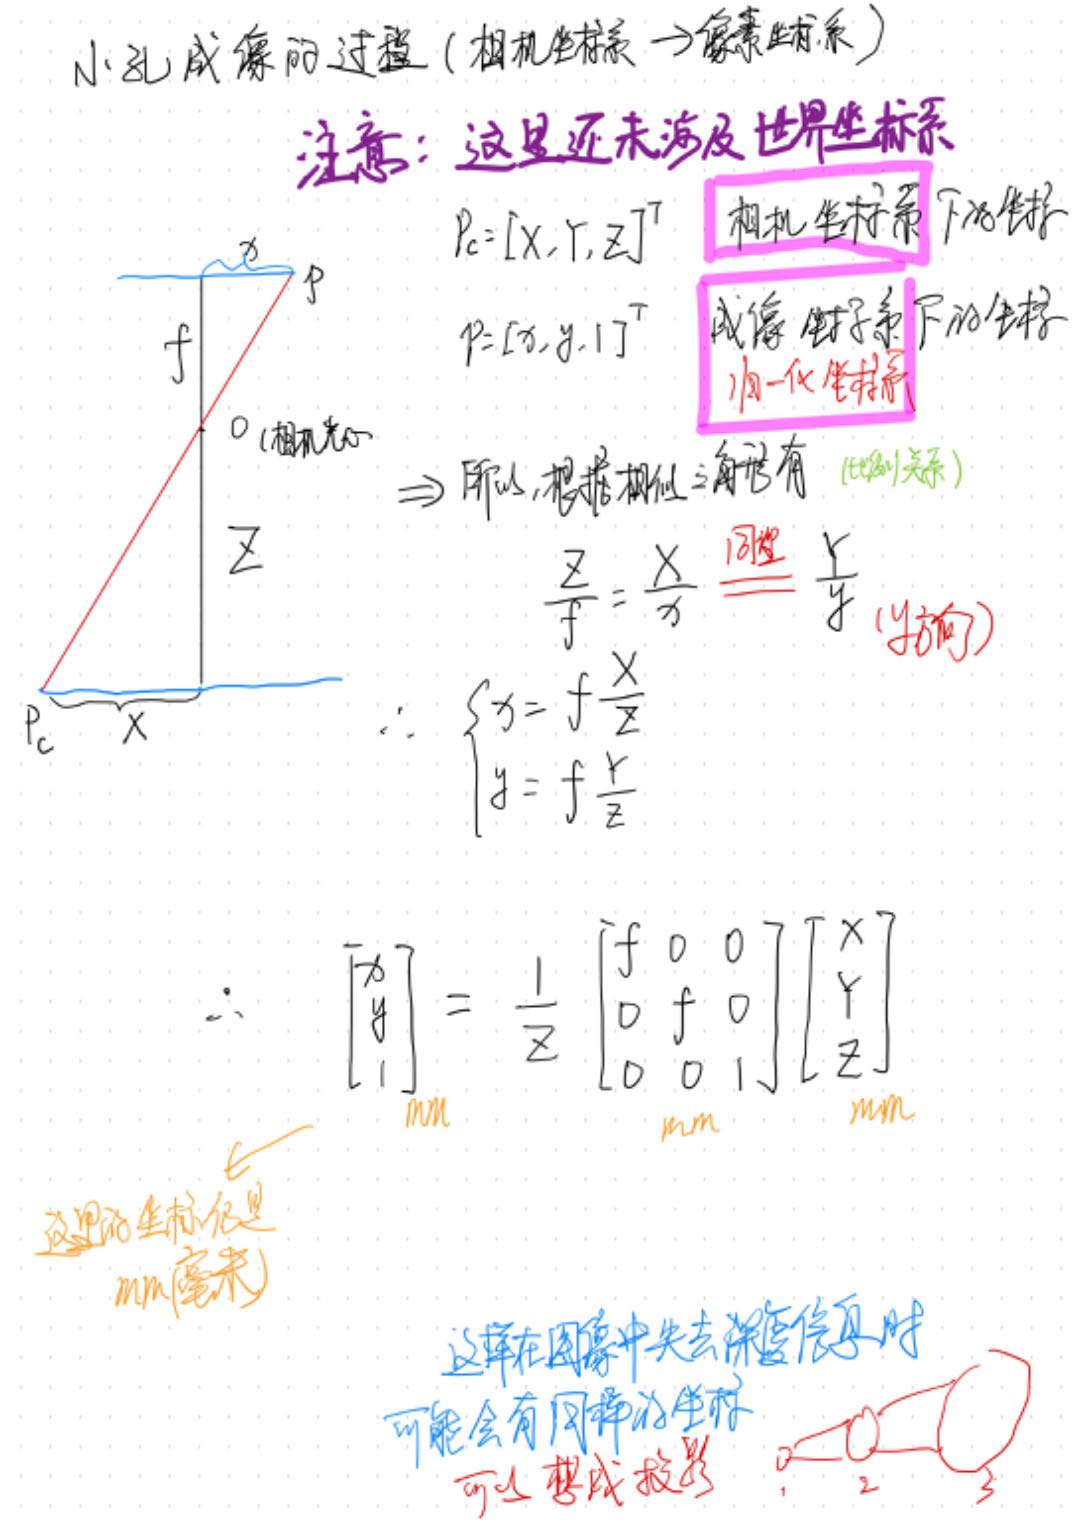 小孔成像的过程(相机坐标系→像素坐标系)
注意: 这里还未涉及世界坐标系
Pc=[X,Y,Z]ᵀ 相机坐标系下的坐标
P=[x,y,1]ᵀ 成像坐标系下的坐标
归一化坐标系
x
P
f
O(相机光心
Z
Pc
X
⇒ 所以,根据相似三角形有 (比例关系)
Z/f = X/x 同理 = Y/y (y方向)
∴ { x = f X/Z
y = f Y/Z
∴ [x y 1] = 1/Z [f 0 0; 0 f 0; 0 0 1] [X Y Z]
mm mm mm
这里的坐标系是
mm(毫米)
这样在图像中失去深度信息时
可能会有同样的坐标
可以想成投影
1 2 3